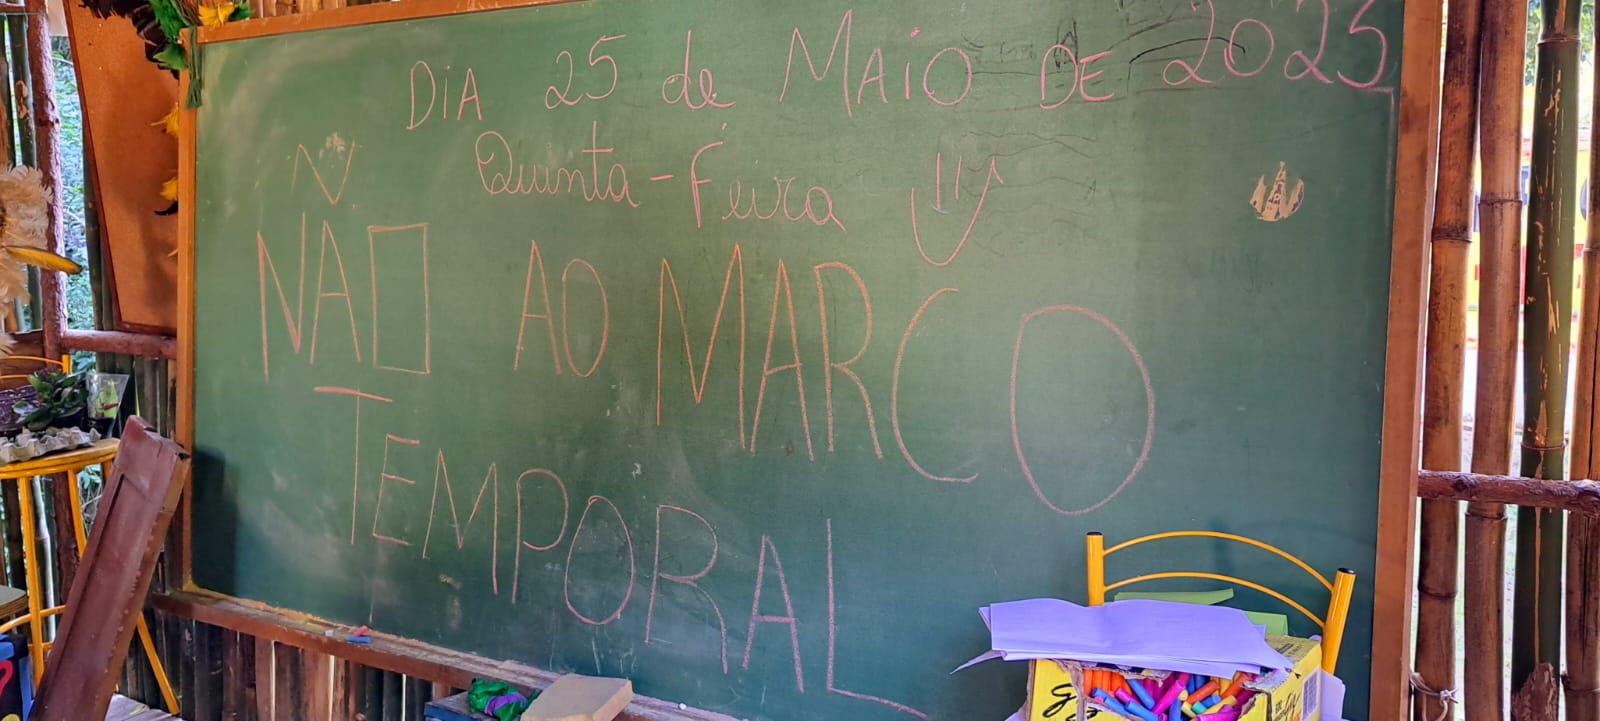 DiA 25 de MAiO DE 2023
Quinta-Feira
NÃO AO MARCO
TEMPORAL